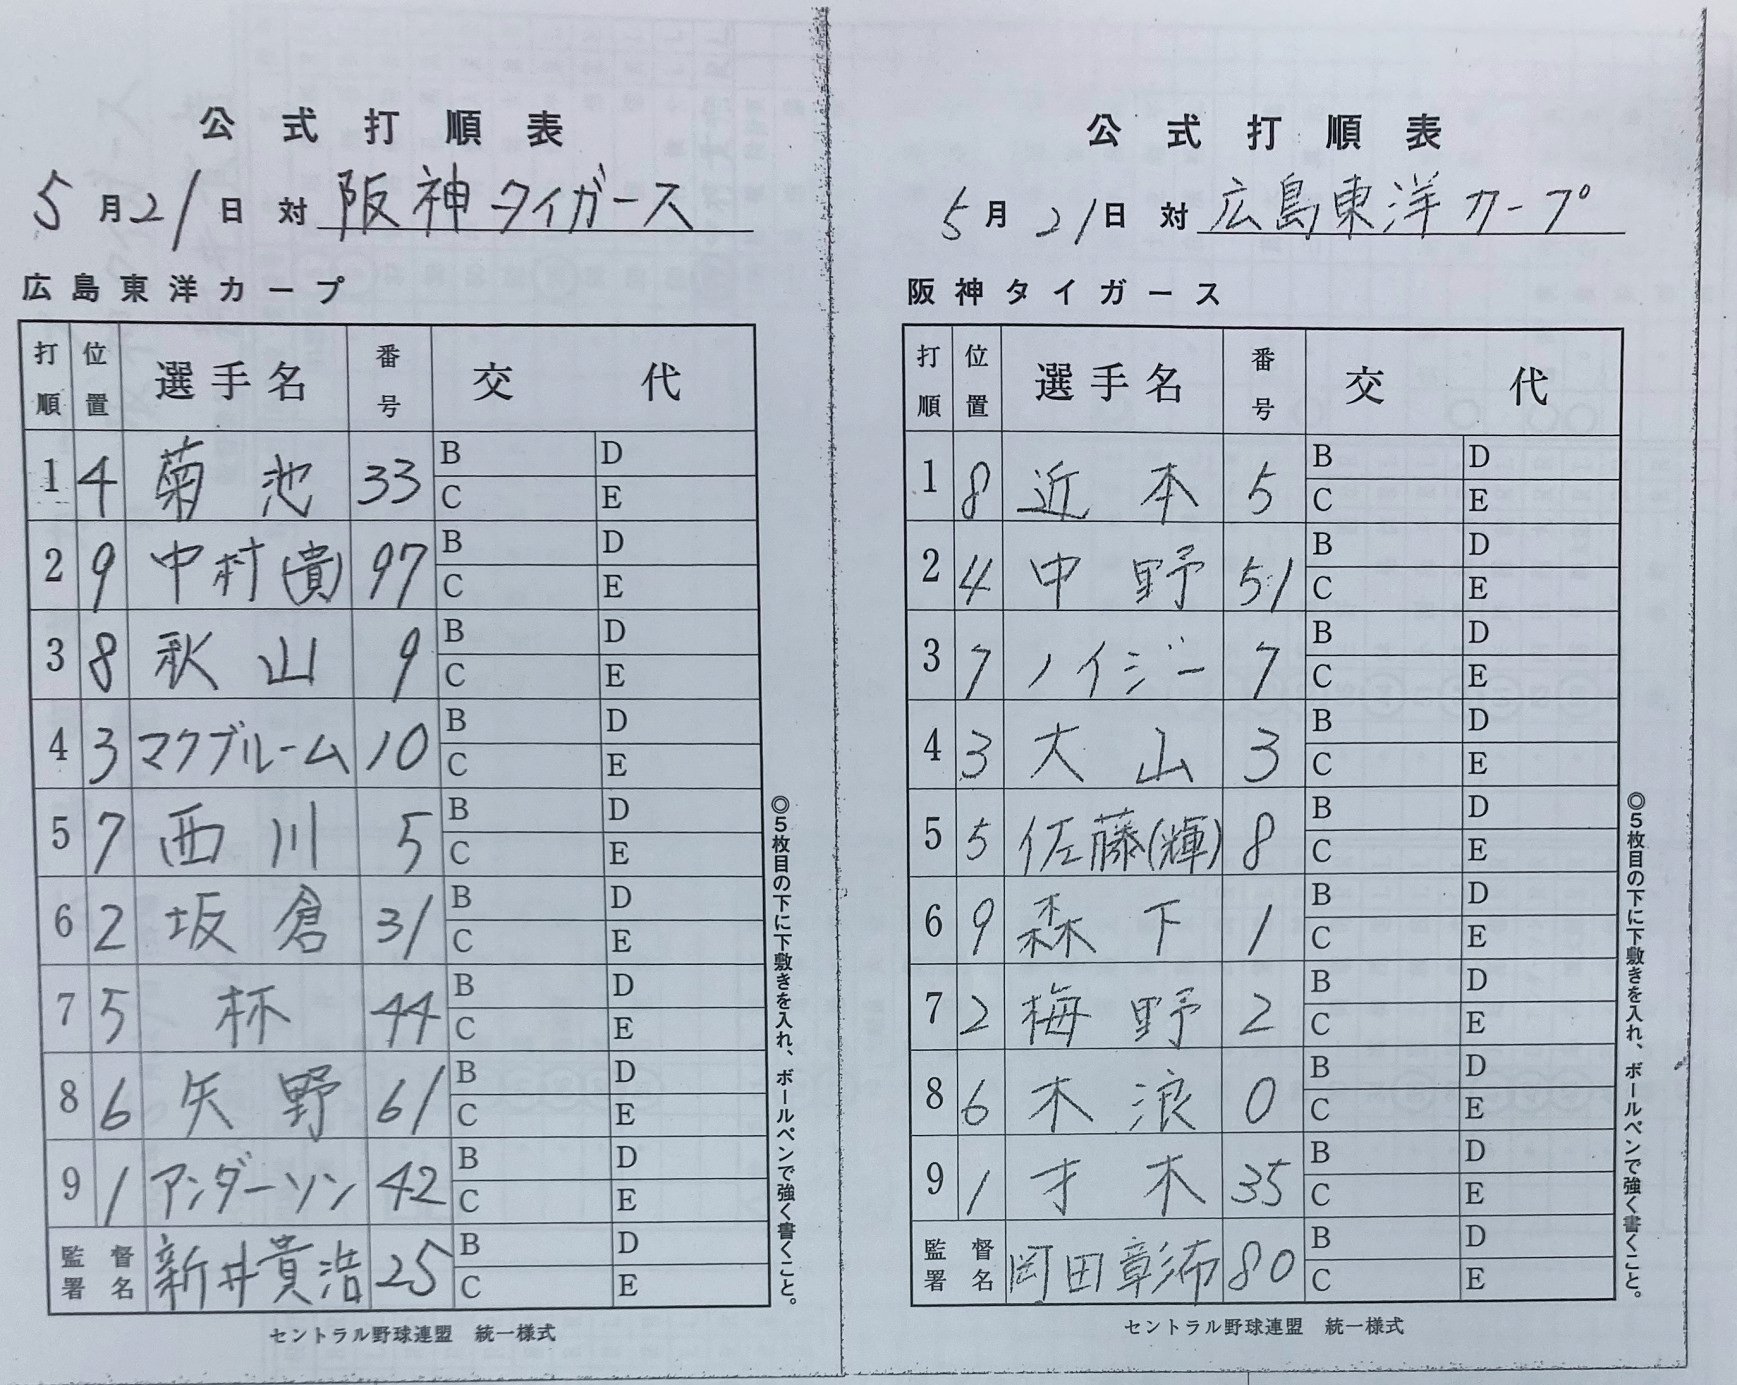 公式打順表
5月21日 対 阪神タイガース
広島東洋カープ
打順 位置 選手名 番号 交代
1 4 菊池 33 B D C E
2 9 中村(貴) 97 B D C E
3 8 秋山 9 B D C E
4 3 マクブルーム 10 B D C E
5 7 西川 5 B D C E
6 2 坂倉 31 B D C E
7 5 林 44 B D C E
8 6 矢野 61 B D C E
9 1 アンダーソン 42 B D C E
監督署名 新井貴浩 25 B D C E
◎5枚目の下に下敷きを入れ、ボールペンで強く書くこと。
セントラル野球連盟 統一様式
公式打順表
5月21日 対 広島東洋カープ
阪神タイガース
打順 位置 選手名 番号 交代
1 8 近本 5 B D C E
2 4 中野 51 B D C E
3 7 ノイジー 7 B D C E
4 3 大山 3 B D C E
5 5 佐藤(輝) 8 B D C E
6 9 森下 1 B D C E
7 2 梅野 2 B D C E
8 6 木浪 0 B D C E
9 1 才木 35 B D C E
監督署名 岡田彰布 80 B D C E
◎5枚目の下に下敷きを入れ、ボールペンで強く書くこと。
セントラル野球連盟 統一様式